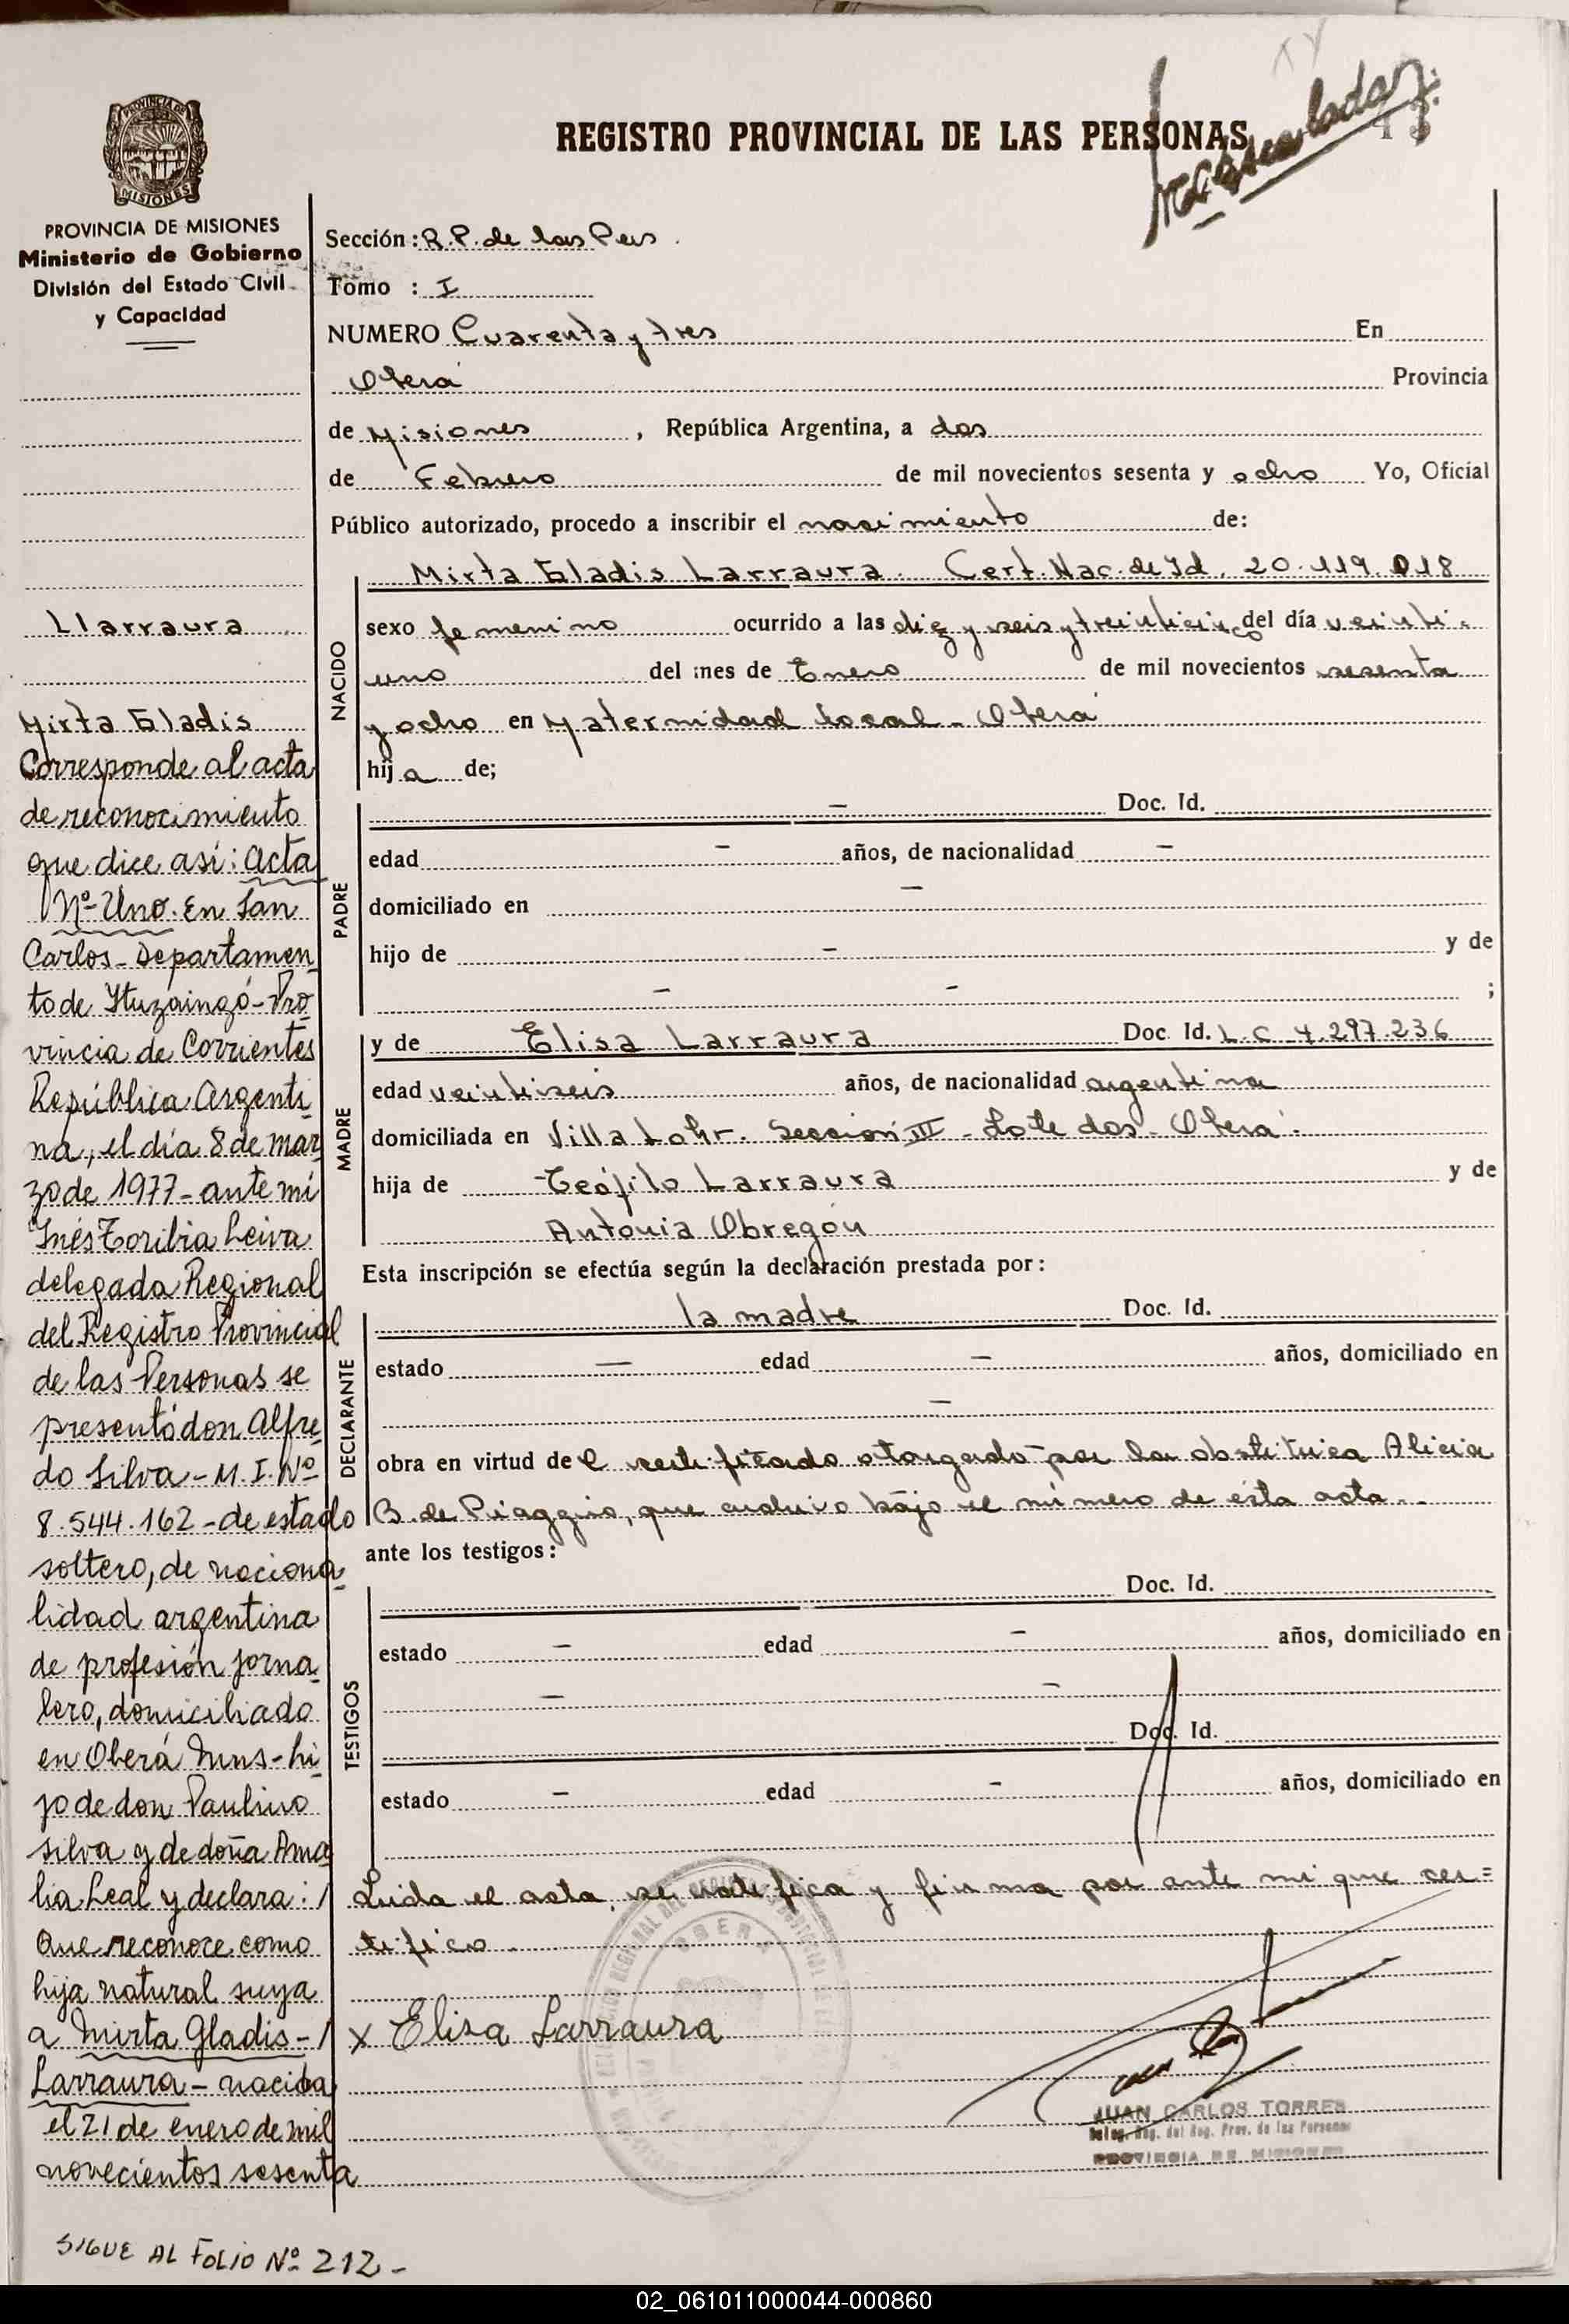 REGISTRO PROVINCIAL DE LAS PERSONAS
PROVINCIA DE MISIONES
Ministerio de Gobierno
División del Estado Civil
y Capacidad
Llarraura
Mirta Gladis
Corresponde al acta
de reconocimiento
que dice así: Acta
Nº Uno. En San
Carlos - Departamen
to de Ituzaingó - Pro
vincia de Corrientes
República Argenti
na, el día 8 de mar
zo de 1977 - ante mí
Inés Toribia Leiva
delegada Regional
del Registro Provincial
de las Personas se
presentó don Alfre
do Silva - M. I. Nº
8.544.162 - de estado
soltero, de naciona
lidad argentina
de profesión jorna
lero, domiciliado
en Oberá Mnes - hi
jo de don Paulino
Silva y de doña Ama
lia Leal y declara: /
Que reconoce como
hija natural suya
a Mirta Gladis - /
Larraura - nacida
el 21 de enero de mil
novecientos sesenta
SIGUE AL FOLIO Nº 212 -
Sección: R. P. de las Pers.
Tomo : I
NUMERO Cuarenta y tres En
Oberá Provincia
de Misiones, República Argentina, a dos
de Febrero de mil novecientos sesenta y ocho Yo, Oficial
Público autorizado, procedo a inscribir el nacimiento de:
NACIDO
Mirta Gladis Larraura. Cert. Nac. de Id. 20.119.018
sexo femenino ocurrido a las diez y seis y treinticinco del día veinti-
uno del mes de Enero de mil novecientos sesenta
y ocho en Maternidad Local - Oberá
hija de;
PADRE
- Doc. Id.
edad - años, de nacionalidad -
domiciliado en -
hijo de - y de
- - ;
MADRE
y de Elisa Larraura Doc. Id. L. C 4.297.236
edad veintiseis años, de nacionalidad argentina
domiciliada en Villa Lohr. Sección III - Lote dos - Oberá.
hija de Teófilo Larraura y de
Antonia Obregón
Esta inscripción se efectúa según la declaración prestada por:
DECLARANTE
la madre Doc. Id.
estado - edad - años, domiciliado en
-
obra en virtud del certificado otorgado por la obstétrica Alicia
B. de Piaggio, que archivo bajo el número de esta acta.
ante los testigos:
TESTIGOS
Doc. Id.
estado - edad - años, domiciliado en
- -
Doc. Id.
estado - edad - años, domiciliado en
Leida el acta, se ratifica y firma por ante mi que cer=
tifico
x Elisa Larraura
OBERA
JUAN CARLOS TORRES
Deleg. Reg. del Reg. Prov. de las Personas
PROVINCIA DE MISIONES
02_061011000044-000860